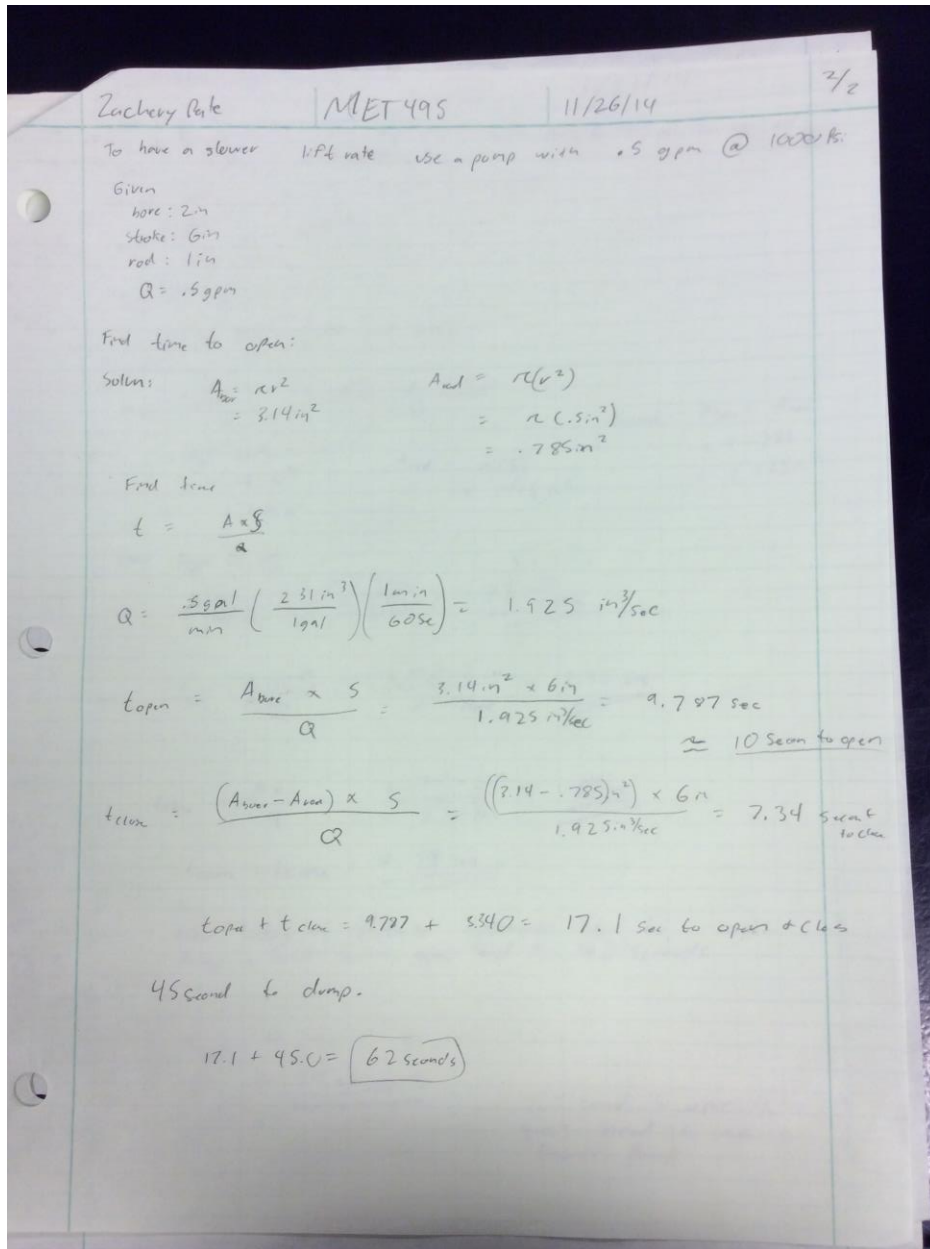 2/2
Zachery Pate MET 495 11/26/14
To have a slower lift rate use a pump with .5 gpm @ 1000 Psi
Given
bore: 2in
stroke: 6in
rod: 1in
Q = .5gpm
Find time to open:
Soln: A_bore = πr² A_rod = π(r²)
= 3.14in² = π(.5in²)
= .785in²
Find time
t = A x S / Q
Q = .5gal/min (231in³/1gal)(1min/60sec) = 1.925 in³/sec
t open = A_bore x S / Q = 3.14in² x 6in / 1.925 in³/sec = 9.787 sec
≈ 10 Secon to open
t close = (A_bore - A_rod) x S / Q = ((3.14 - .785)in²) x 6in / 1.925in³/sec = 7.34 secont to close
t open + t close = 9.787 + 3.340 = 17.1 sec to open + clos
45 second to dump.
17.1 + 45.0 = 62 seconds